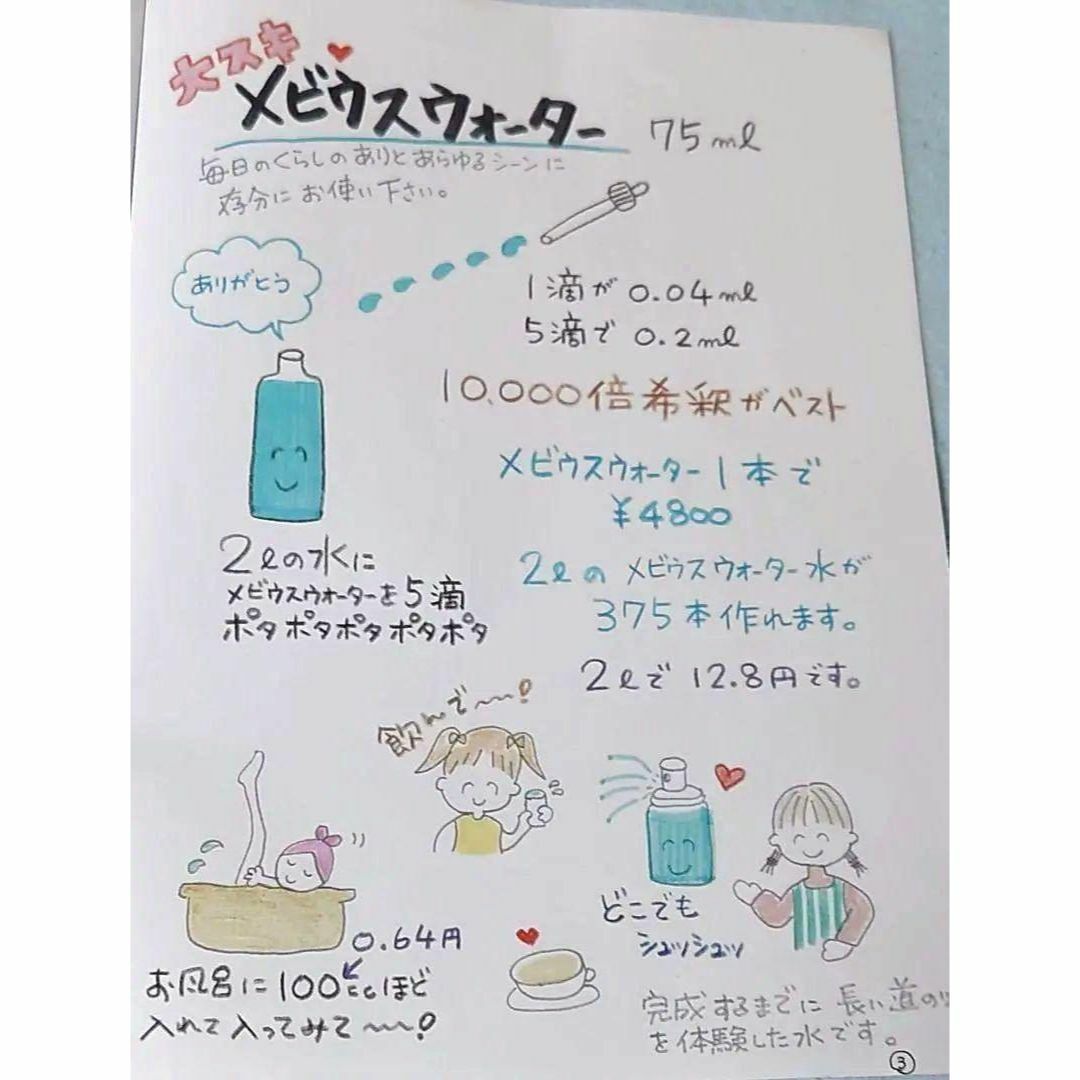 大スキ
メビウスウォーター 75ml
毎日のくらしのありとあらゆるシーンに
存分にお使い下さい。
ありがとう
1滴が 0.04ml
5滴で 0.2ml
10,000倍希釈がベスト
メビウスウォーター1本で
¥4800
2lのメビウスウォーター水が
375本作れます。
2lで 12.8円です。
2lの水に
メビウスウォーターを5滴
ポタポタポタポタポタ
飲んで〜〜!
0.64円
お風呂に100ccほど
入れて入ってみて〜〜!
どこでも
シュッシュッ
完成するまでに長い道の
を体験した水です。
3